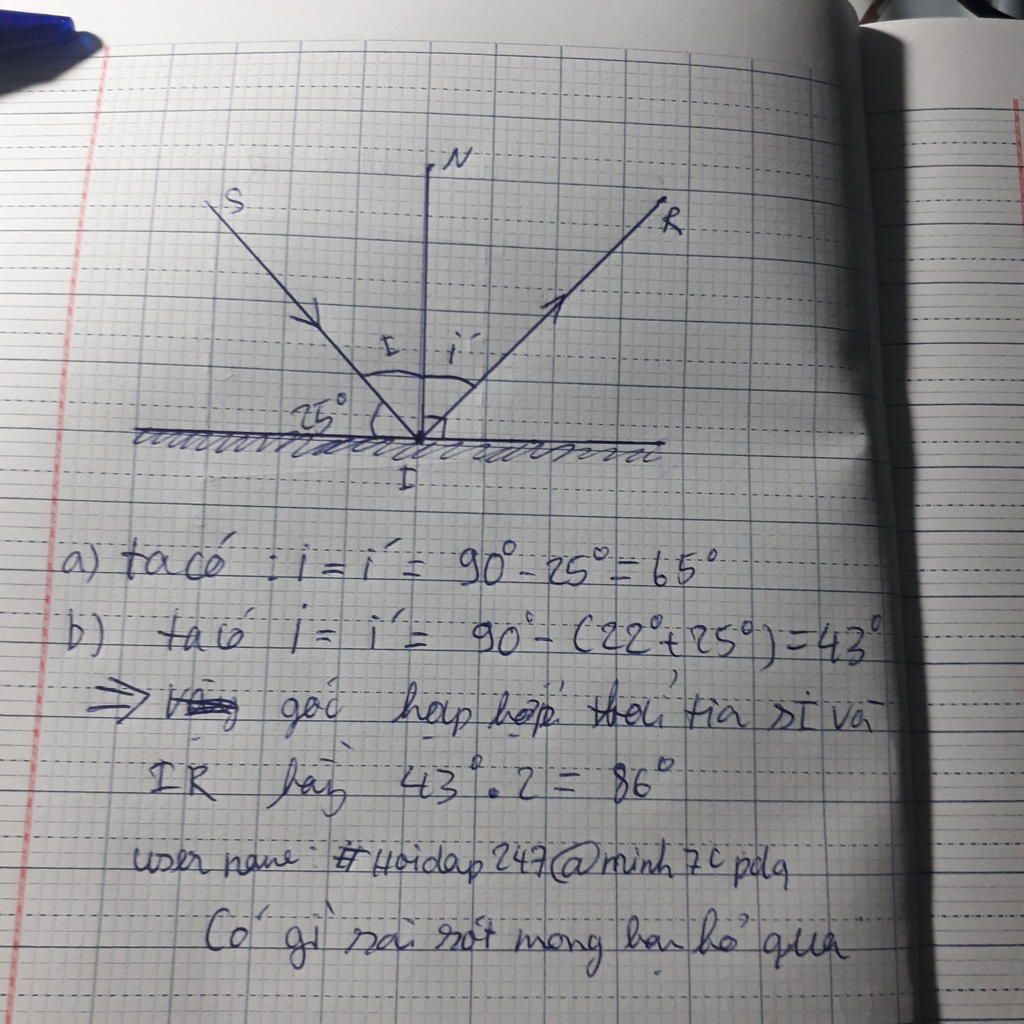 N
S
R
I i'
25°
I
a) ta có : i = i' = 90° - 25° = 65°
b) ta có i = i' = 90° - (22° + 25°) = 43°
⇒ góc hợp hợp bởi tia SI và
IR là 43° . 2 = 86°
user name: #Hoidap247@minh7cpdq
Có gì sai sót mong bạn bỏ qua